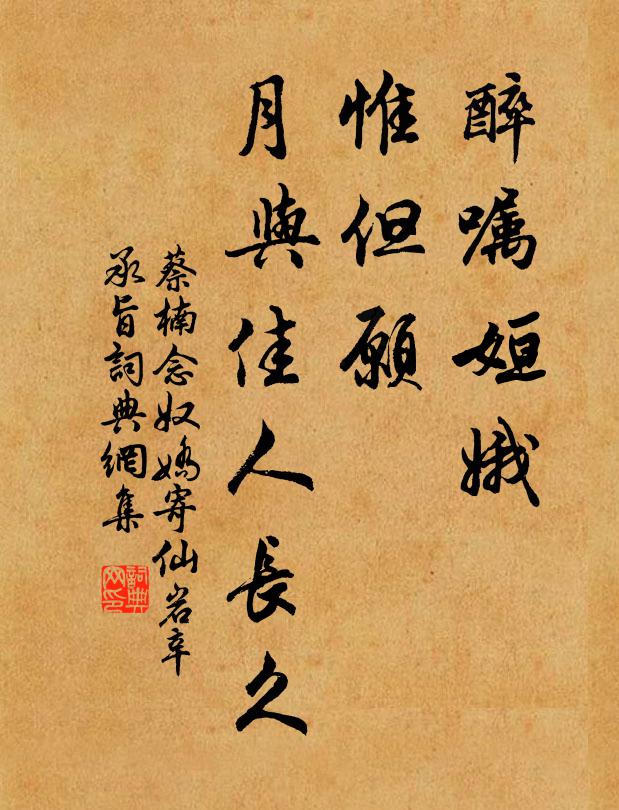 醉嘱姮娥
惟但願
月與佳人長久
蔡楠念奴嬌寄仙岩辛
承旨詞典網集
詞典网印